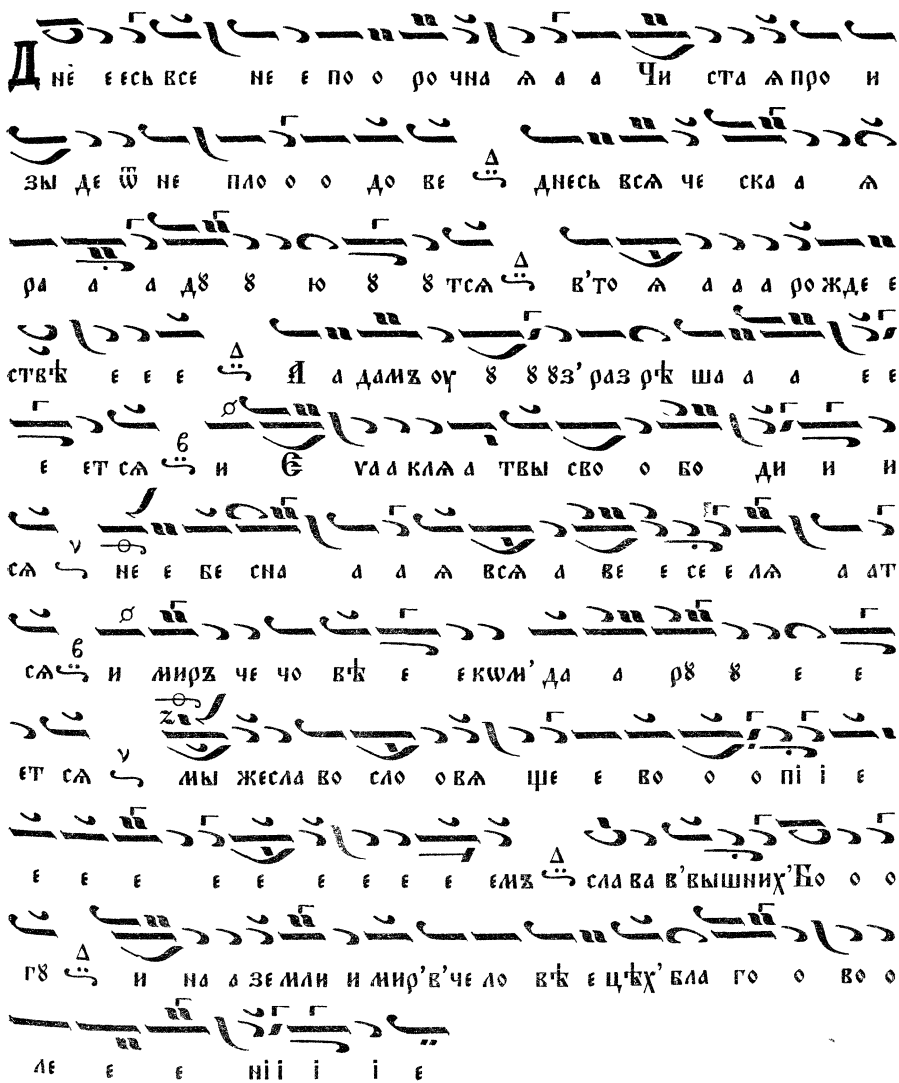 Днѐ е есь все не е по о ро чна ѧ а а Чи ста ѧ про и
зы де ѿ не пло о о до ве Δ днесь всѧ че ска а ѧ
ра а а дꙋ ꙋ ю ꙋ ꙋ тсѧ Δ в’то ѧ а а а ро жде е
ствѣ е е е Δ А а дамъ оу ꙋ ꙋ ꙋз’ раз рѣ ша а а е е
е ет сѧ в и Є ѵа а клѧ а твы сво о бо ди и и
сѧ ν не е бе сна а а ѧ всѧ а ве е се е лѧ а ат
сѧ в и миръ че чо вѣ е е кѡм’ да а рꙋ ꙋ е е
ет сѧ ν мы же сла во сло о вѧ ще е во о о пі і е
е е е е е е е е е емъ Δ сла ва в’вышних’ Бо о о
гꙋ Δ и на а зе мли и мир’ в’че ло вѣ е цѣх’ бла го о во о
ле е е ні і і і е